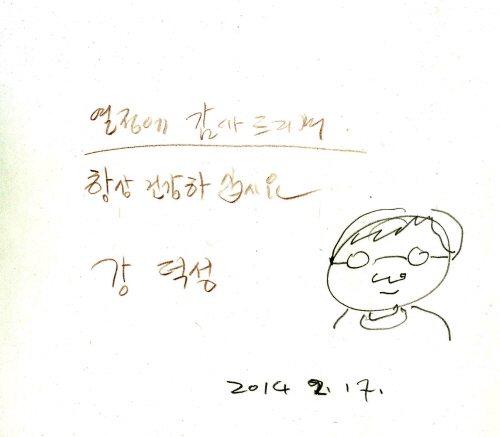 열정에 감사드리며.
항상 건강하십시오
강 덕성
2014 2. 17.